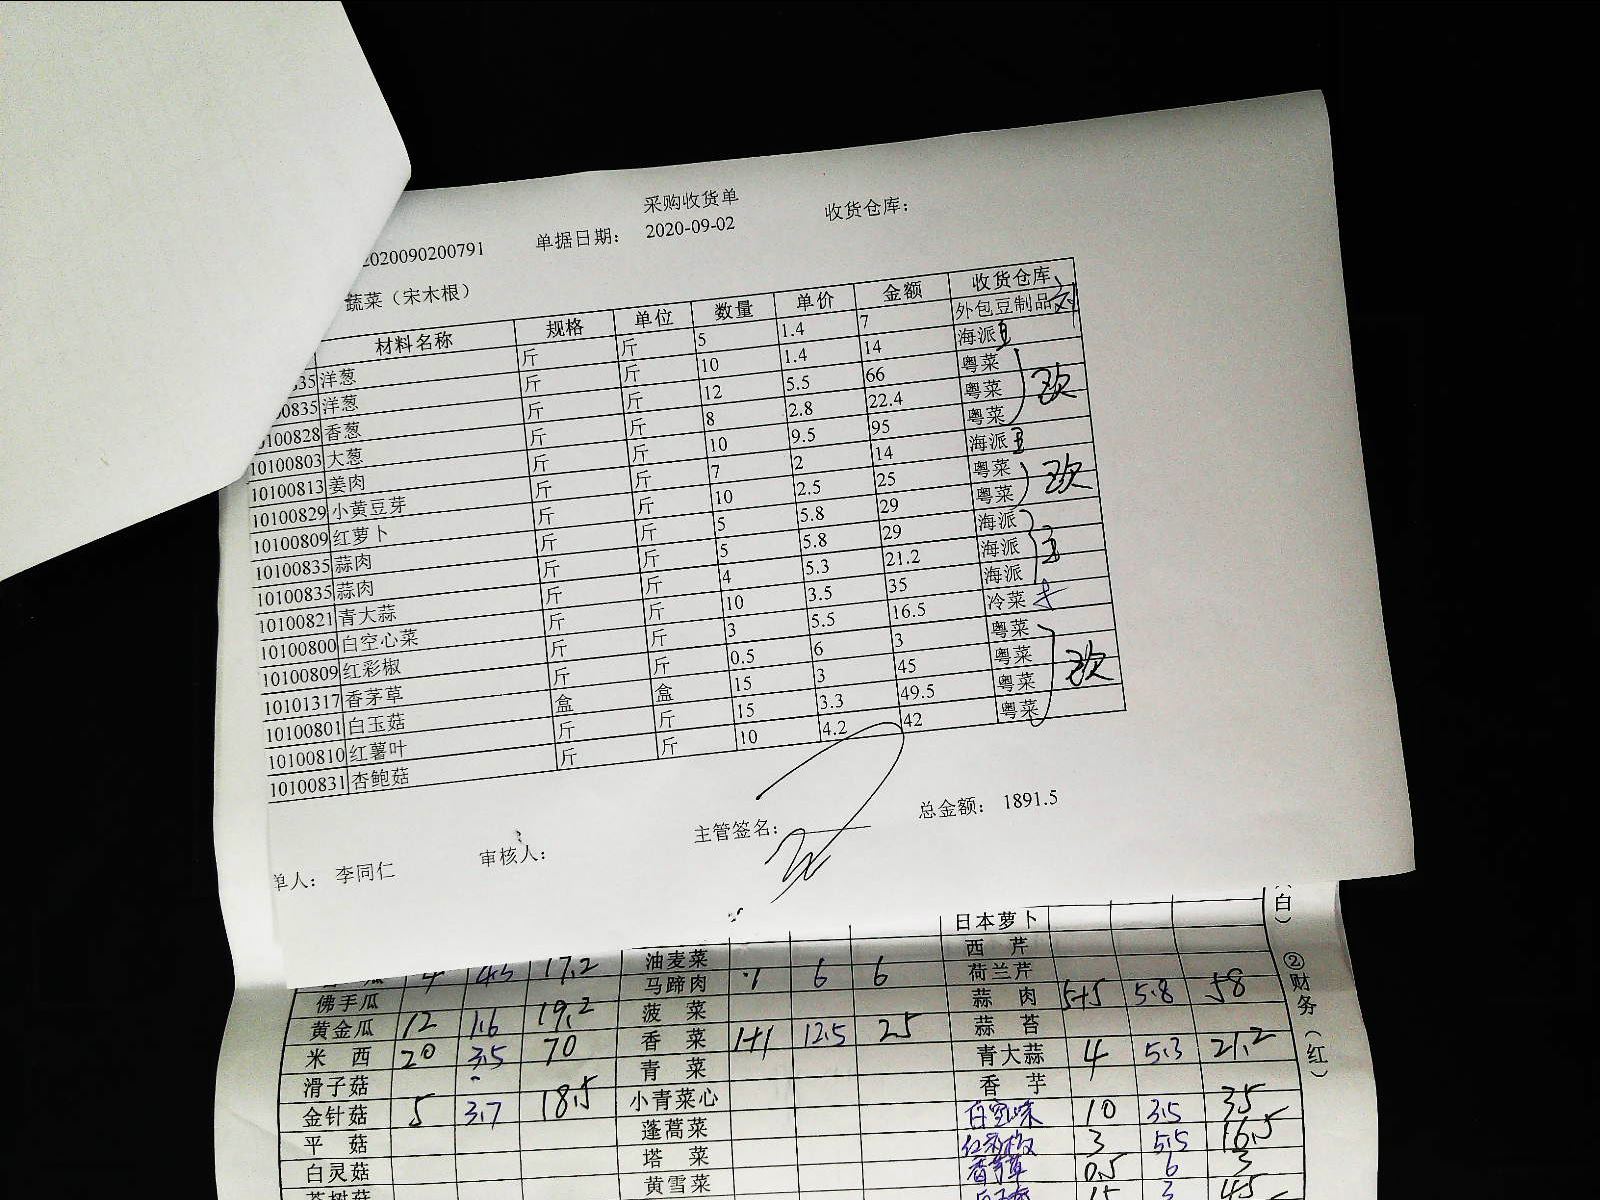 采购收货单
2020090200791 单据日期： 2020-09-02 收货仓库：
蔬菜（宋木根）
材料名称 规格 单位 数量 单价 金额 收货仓库
35 洋葱 斤 斤 5 1.4 7 外包豆制品
0835 洋葱 斤 斤 10 1.4 14 海派
10100828 香葱 斤 斤 12 5.5 66 粤菜
10100803 大葱 斤 斤 8 2.8 22.4 粤菜
10100813 姜肉 斤 斤 10 9.5 95 粤菜
10100829 小黄豆芽 斤 斤 7 2 14 海派
10100809 红萝卜 斤 斤 10 2.5 25 粤菜
10100835 蒜肉 斤 斤 5 5.8 29 粤菜
10100835 蒜肉 斤 斤 5 5.8 29 海派
10100821 青大蒜 斤 斤 4 5.3 21.2 海派
10100800 白空心菜 斤 斤 10 3.5 35 海派
10100809 红彩椒 斤 斤 3 5.5 16.5 冷菜
10101317 香茅草 斤 斤 0.5 6 3 粤菜
10100801 白玉菇 盒 盒 15 3 45 粤菜
10100810 红薯叶 斤 斤 15 3.3 49.5 粤菜
10100831 杏鲍菇 斤 斤 10 4.2 42 粤菜
单人： 李同仁 审核人： 主管签名： 总金额： 1891.5
日本萝卜
油麦菜 西芹
瓜 4 4.3 17.2 马蹄肉 1 6 6 荷兰芹
佛手瓜 菠菜 蒜肉 5+5 5.8 58
黄金瓜 12 1.6 19.2 香菜 1+1 12.5 25 蒜苔
米西 20 3.5 70 青菜 青大蒜 4 5.3 21.2
滑子菇 小青菜心 香芋
金针菇 5 3.7 18.5 蓬蒿菜 10 3.5 35
平菇 塔菜 红彩椒 3 5.5 16.5
白灵菇 黄雪菜 香茅草 0.5 6 3
茶树菇 15 3 45
（白）
②财务（红）